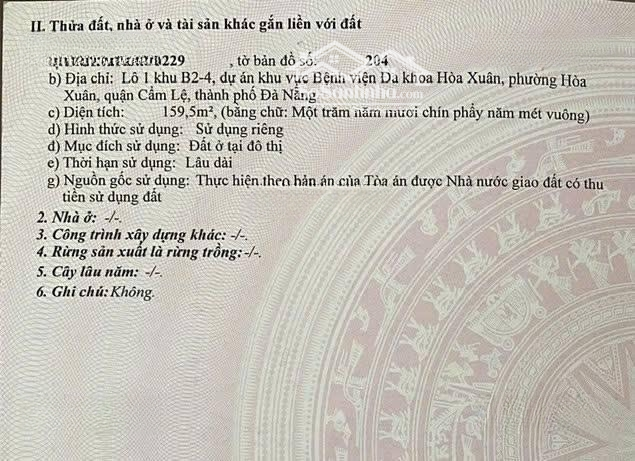 II. Thửa đất, nhà ở và tài sản khác gắn liền với đất
229 , tờ bản đồ số: 204
b) Địa chỉ: Lô 1 khu B2-4, dự án khu vực Bệnh viện Đa khoa Hòa Xuân, phường Hòa
Xuân, quận Cẩm Lệ, thành phố Đà Nẵng
c) Diện tích: 159,5m², (bằng chữ: Một trăm năm mươi chín phẩy năm mét vuông)
d) Hình thức sử dụng: Sử dụng riêng
đ) Mục đích sử dụng: Đất ở tại đô thị
e) Thời hạn sử dụng: Lâu dài
g) Nguồn gốc sử dụng: Thực hiện theo bản án của Tòa án được Nhà nước giao đất có thu
tiền sử dụng đất
2. Nhà ở: -/-.
3. Công trình xây dựng khác: -/-.
4. Rừng sản xuất là rừng trồng: -/-.
5. Cây lâu năm: -/-.
6. Ghi chú: Không.